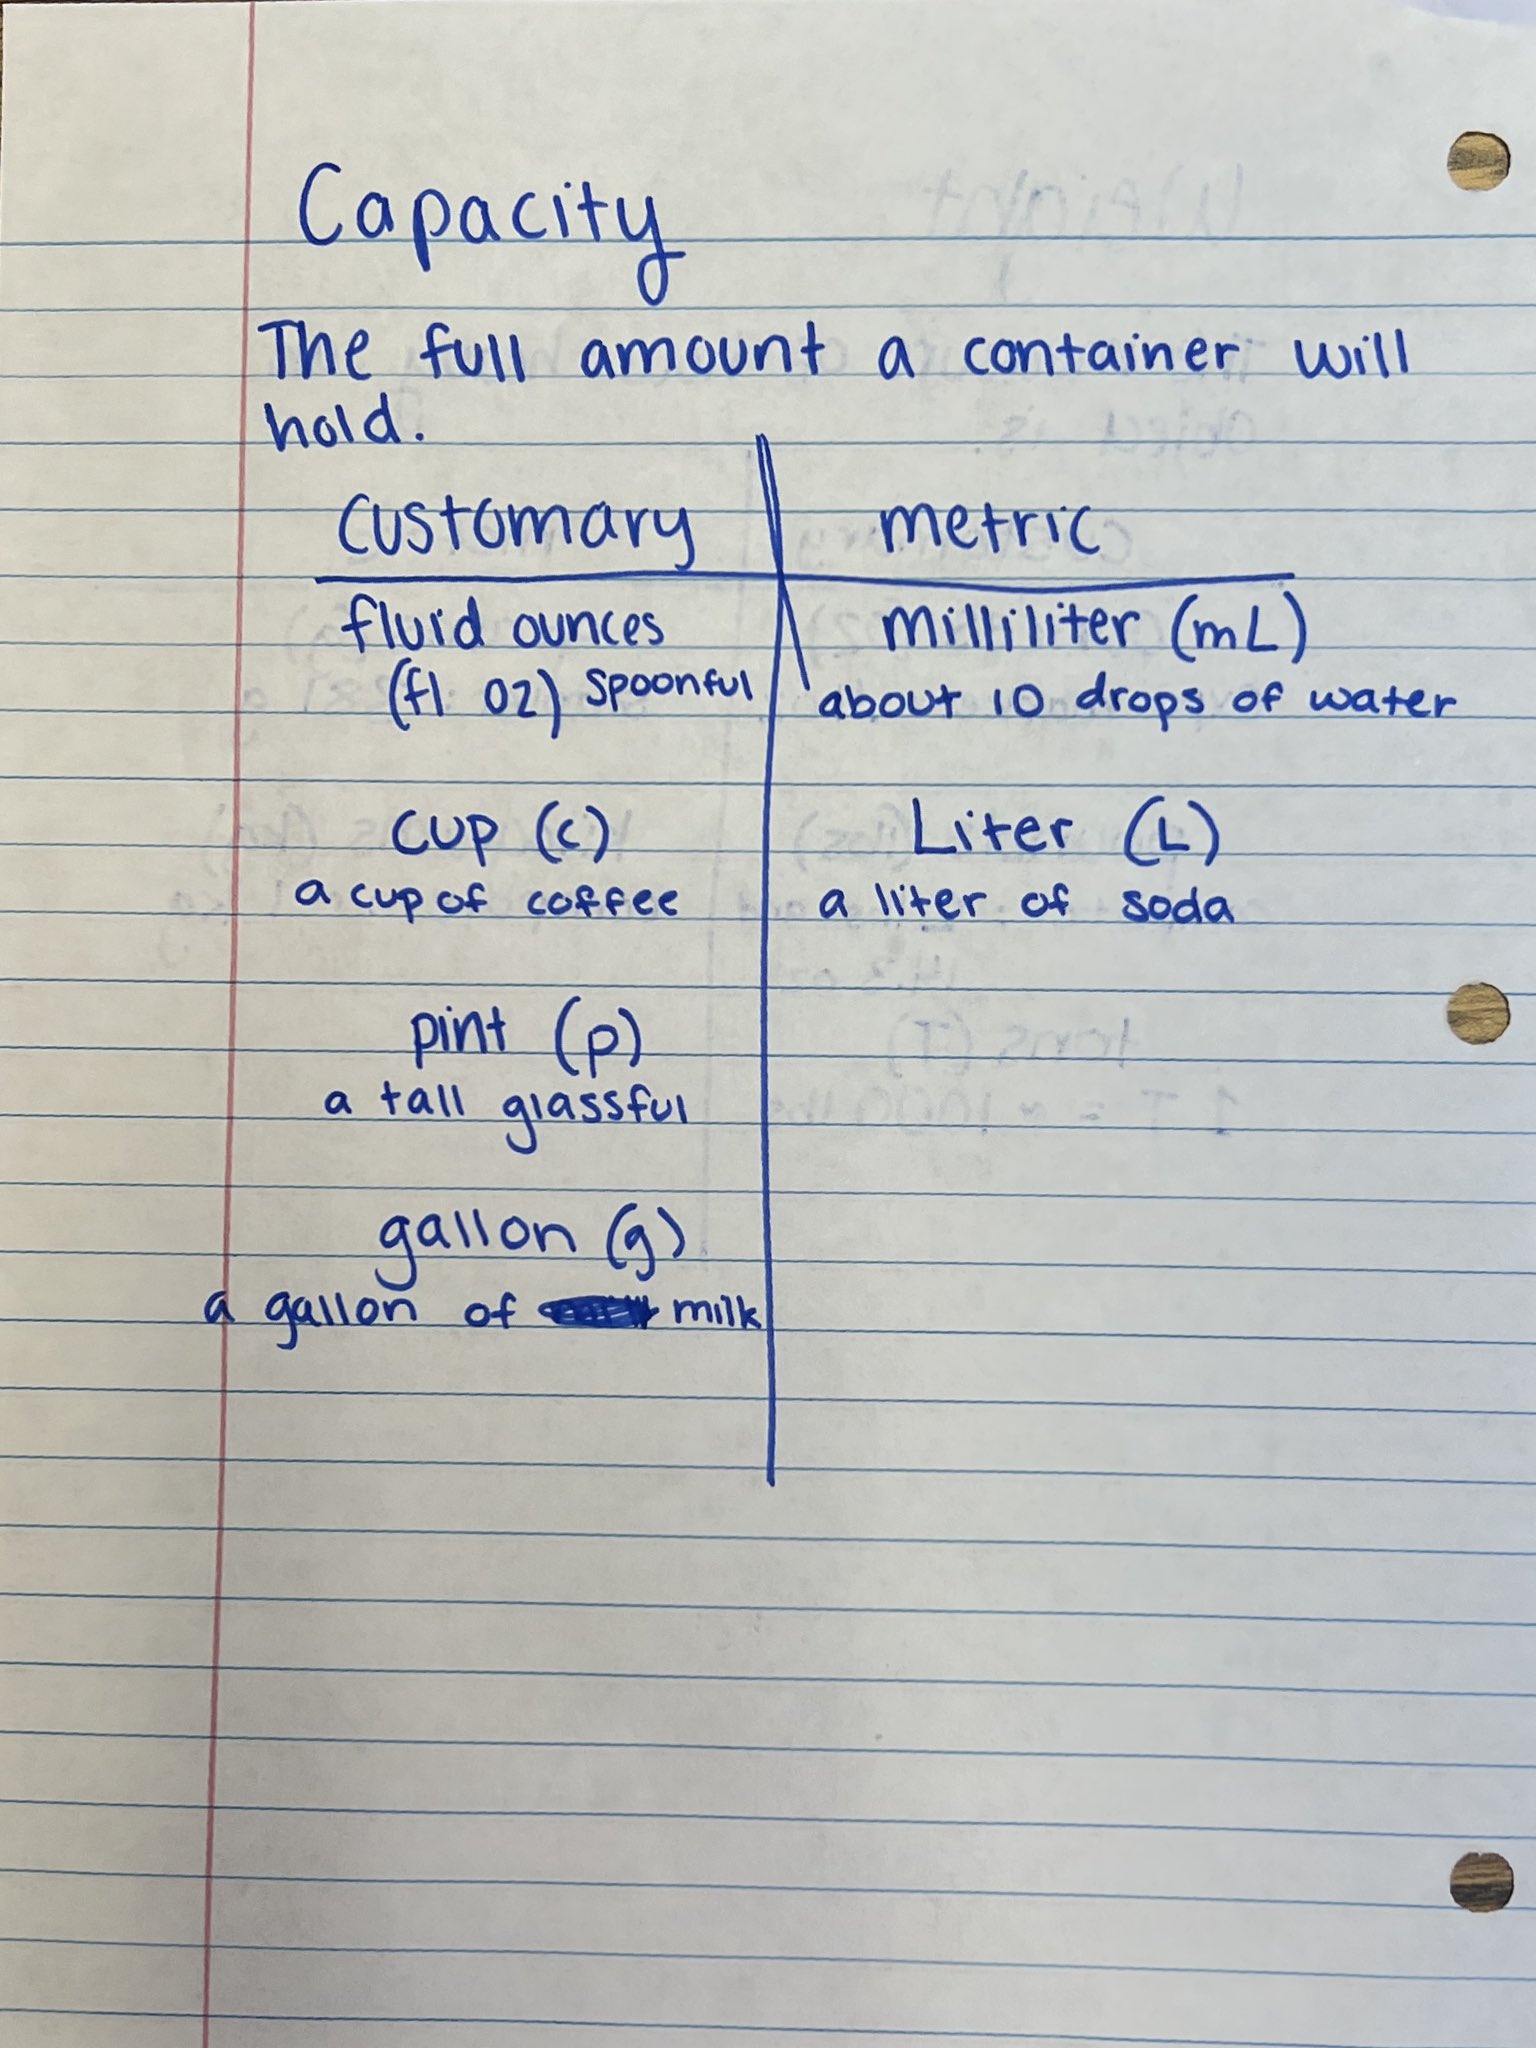 Capacity
The full amount a container will
hold.
customary metric
fluid ounces milliliter (mL)
(fl oz) spoonful about 10 drops of water
cup (c) Liter (L)
a cup of coffee a liter of soda
pint (p)
a tall glassful
gallon (g)
a gallon of milk